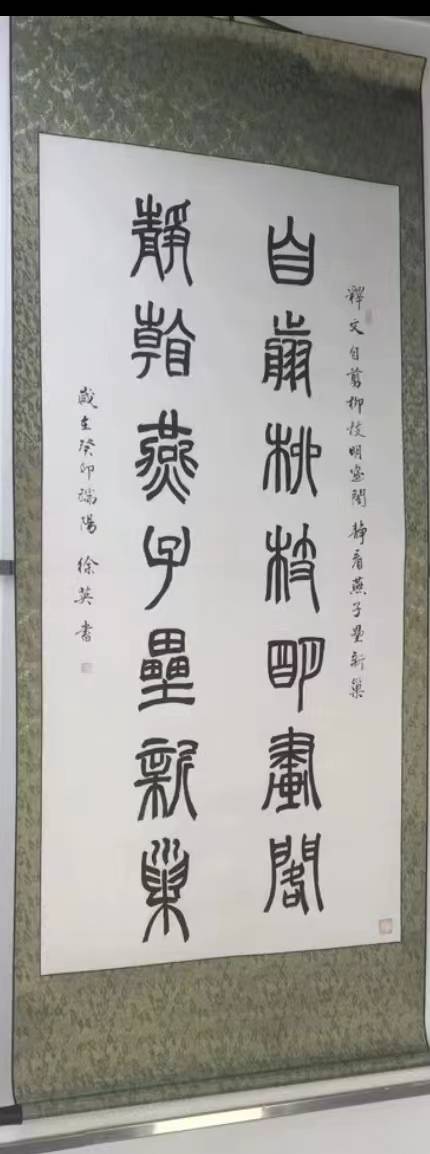 釋文自剪柳枝明畫閣 静看燕子壘新巢
自剪柳枝明畫閣
靜看燕子壘新巢
歲在癸卯端陽 徐英書